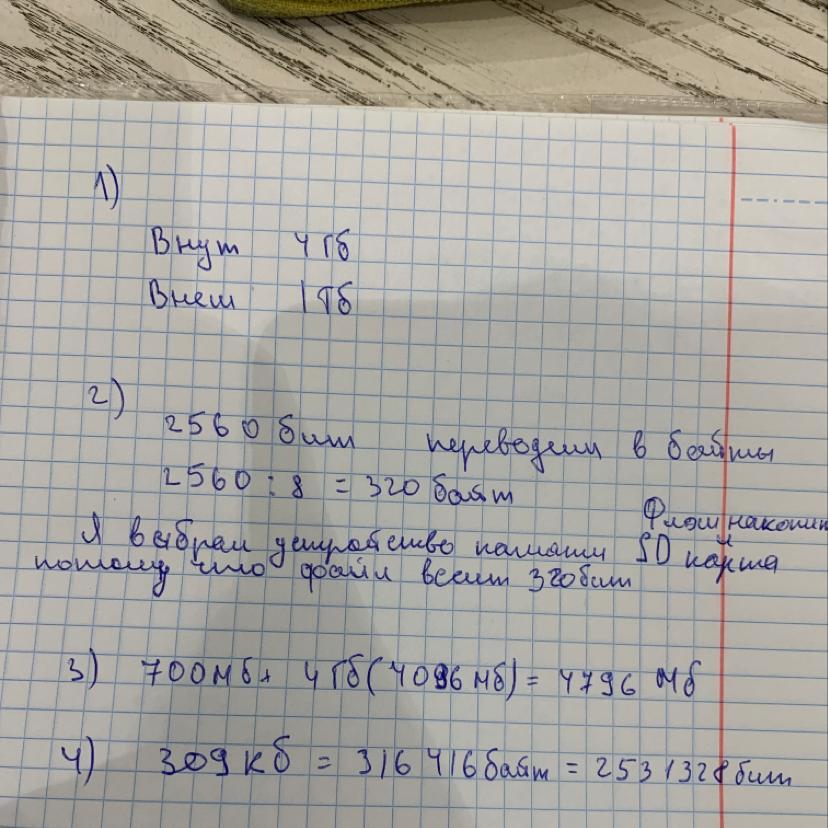 1)
Внут 4 Гб
Внеш 1 Тб
2)
2560 бит переводим в байты
2560 : 8 = 320 байт
Флеш накопит
Я выбрал устройство памяти SD карта
потому что файл весит 320 бит
3) 700 Мб + 4 Гб (4096 Мб) = 4796 Мб
4) 309 Кб = 316 416 байт = 2531328 бит